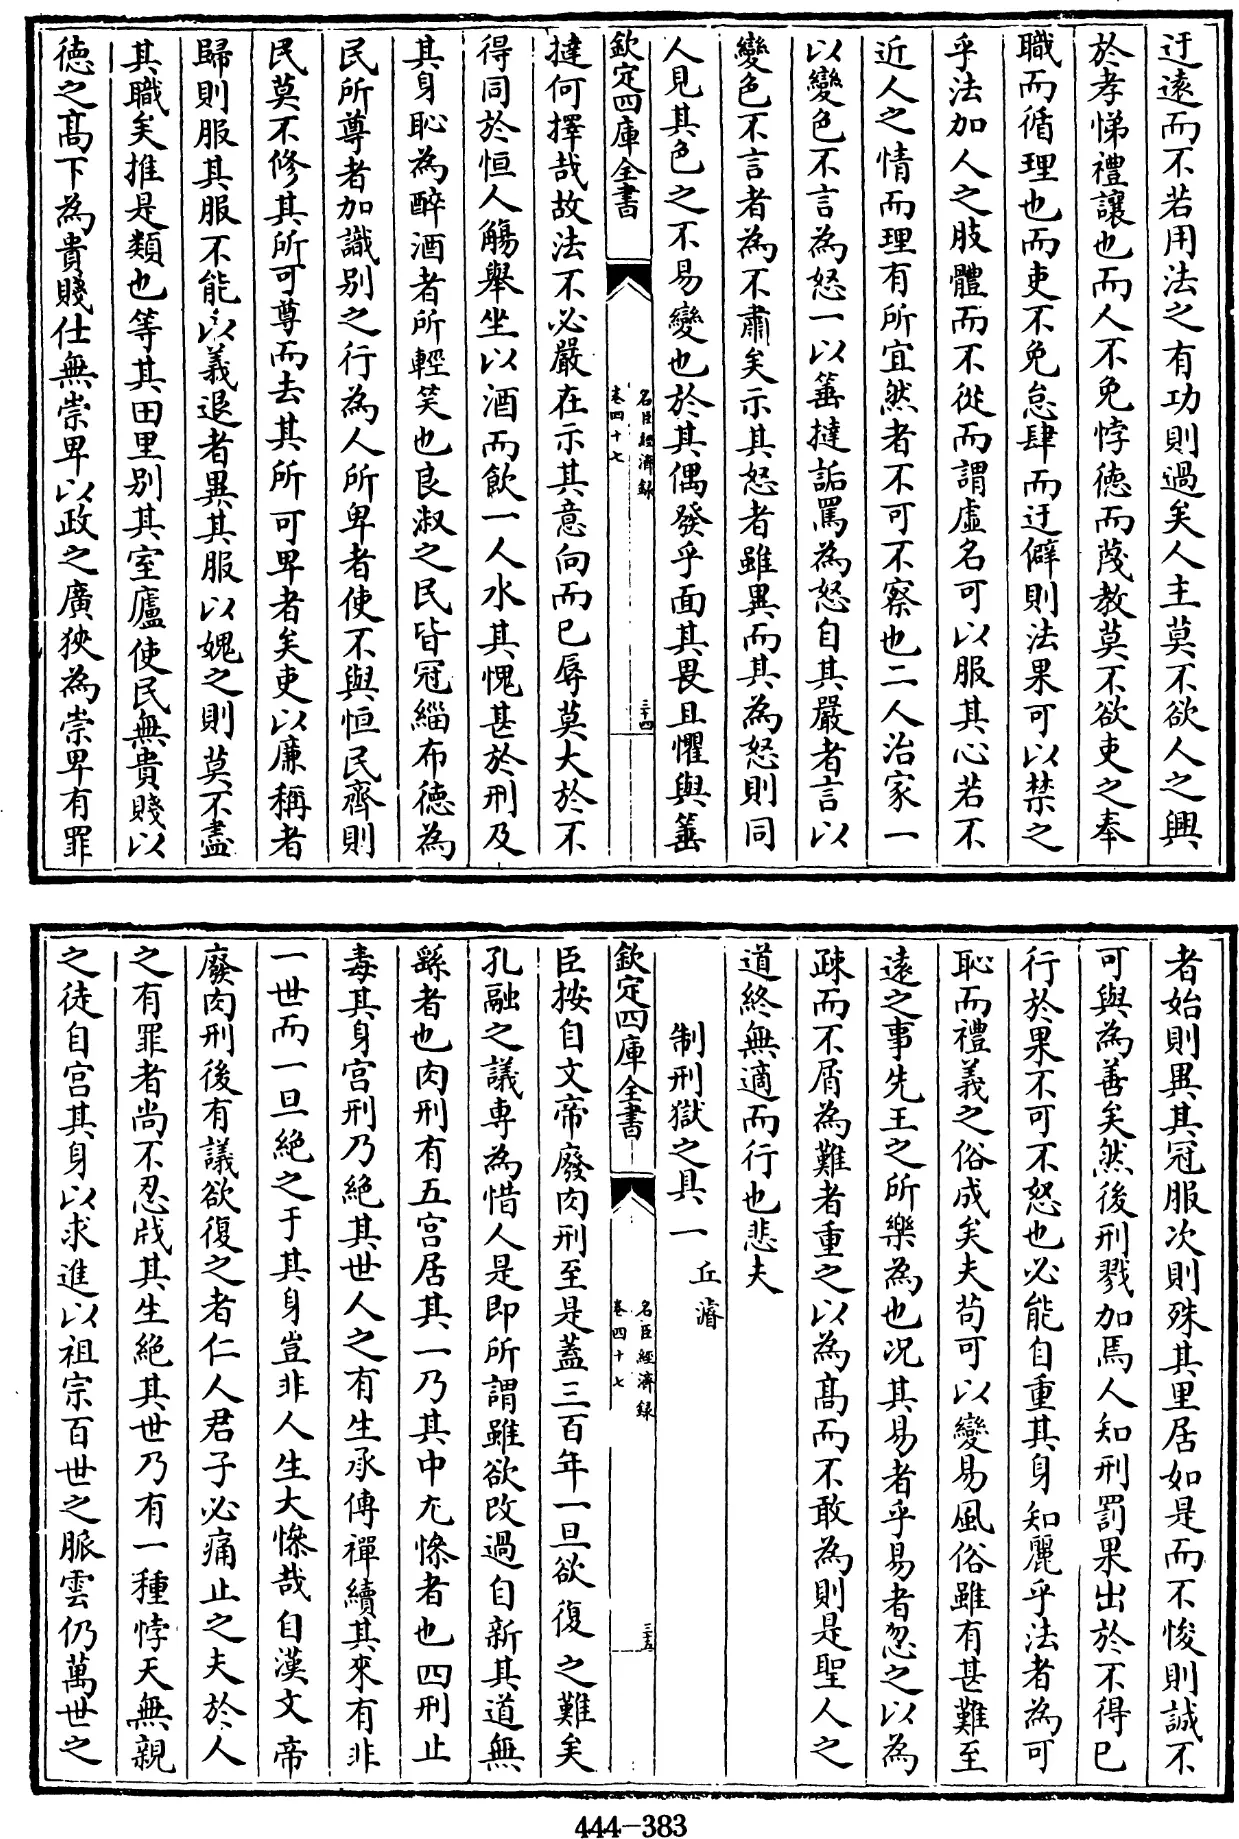 迂遠而不若用法之有功則過矣人主莫不欲人之興
於孝悌禮讓也而人不免悖德而蔑教莫不欲吏之奉
職而循理也而吏不免怠肆而迂僻則法果可以禁之
乎法加人之肢體而不從而謂虛名可以服其心若不
近人之情而理有所宜然者不可不察也二人治家一
以變色不言為怒一以箠撻詬罵為怒自其嚴者言以
變色不言者為不肅矣示其怒者雖異而其為怒則同
人見其色之不易變也於其偶發乎面其畏且懼與箠
欽定四庫全書
名臣經濟錄
卷四十七
三十四
撻何擇哉故法不必嚴在示其意向而已辱莫大於不
得同於恒人觴舉坐以酒而飲一人水其愧甚於刑及
其身恥為醉酒者所輕笑也良淑之民皆冠緇布德為
民所尊者加識别之行為人所卑者使不與恒民齊則
民莫不修其所可尊而去其所可卑者矣吏以廉稱者
歸則服其服不能以義退者異其服以媿之則莫不盡
其職矣推是類也等其田里别其室廬使民無貴賤以
德之高下為貴賤仕無崇卑以政之廣狹為崇卑有罪
者始則異其冠服次則殊其里居如是而不悛則誠不
可與為善矣然後刑戮加焉人知刑罰果出於不得已
行於果不可不怒也必能自重其身知麗乎法者為可
恥而禮義之俗成矣夫茍可以變易風俗雖有甚難至
遠之事先王之所樂為也况其易者乎易者忽之以為
疎而不屑為難者重之以為高而不敢為則是聖人之
道終無適而行也悲夫
制刑獄之具一 丘濬
欽定四庫全書
名臣經濟錄
卷四十七
三十五
臣按自文帝廢肉刑至是蓋三百年一旦欲復之難矣
孔融之議專為惜人是即所謂雖欲改過自新其道無
繇者也肉刑有五宫居其一乃其中尤慘者也四刑止
毒其身宫刑乃絶其世人之有生承傳禪續其來有非
一世而一旦絶之于其身豈非人生大慘哉自漢文帝
廢肉刑後有議欲復之者仁人君子必痛止之夫於人
之有罪者尚不忍戕其生絶其世乃有一種悖天無親
之徒自宫其身以求進以祖宗百世之脈雲仍萬世之
444-383